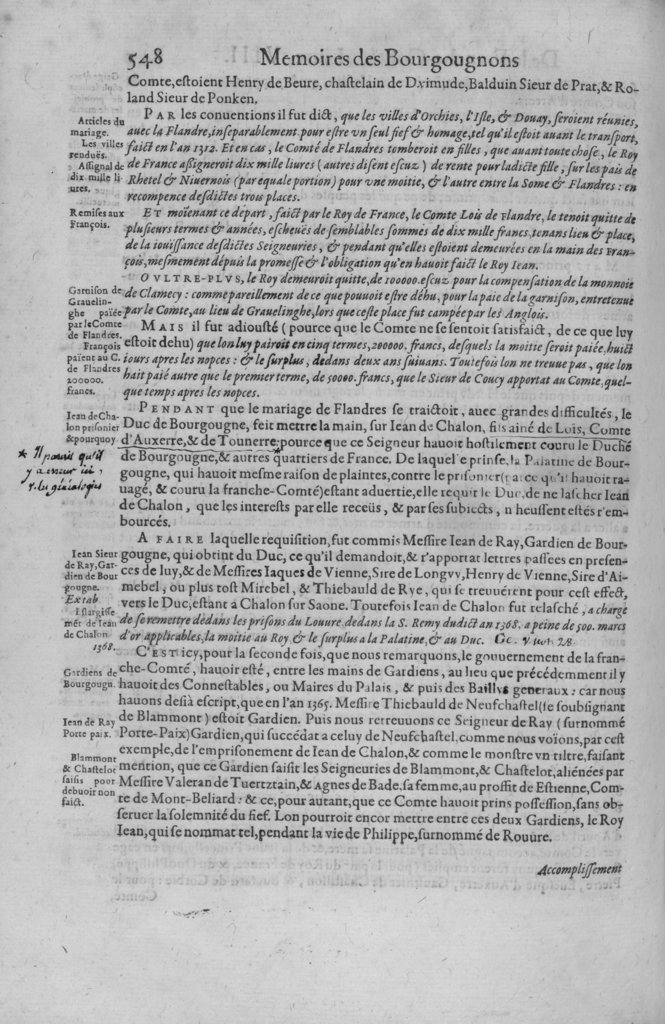 548 Memoires des Bourgougnons
Comte,estoient Henry de Beure, chastelain de Dximude, Balduin Sieur de Prat,& Ro-
land Sieur de Ponken.
Articles du
mariage.
Les villes
rendues.
Assignal de
dix mille li-
ures.
PAR les conuentions il fut dict, que les villes d'Orchies, l'Isle, & Douay, seroient réunies,
auec la Flandre, inseparablement pour estre vn seul fief & homage, tel qu'il estoit auant le transport,
faict en l'an 1312. Et en cas, le Comté de Flandres tomberoit en filles, que auant toute chose, le Roy
de France assigneroit dix mille liures (autres disent escuz) de rente pour ladicte fille, sur les païs de
Rhetel & Niuernois (par equale portion) pour vne moitie, & l'autre entre la Some & Flandres : en
recompence desdictes trois places.
Remises aux
François.
ET moïenant ce départ, faict par le Roy de France, le Comte Lois de Flandre, le tenoit quitte de
plusieurs termes & années, escheuës de semblables sommes de dix mille francs, tenans lieu & place,
de la iouissance desdictes Seigneuries, & pendant qu'elles estoient demeurées en la main des Fran-
çois, mesmement dépuis la promesse & l'obligation qu'en hauoit faict le Roy Iean.
Garnison de
Grauelin-
ghe païée
par le Comte
de Flandres.
François
païent au C.
de Flandres
200000.
francs.
OVLTRE-PLVS, le Roy demeuroit quitte, de 100000. escuz pour la compensation de la monnoie
de Clamecy : comme pareillement de ce que pouuoit estre déhu, pour la paie de la garnison, entretenue
par le Comte, au lieu de Grauelinghe, lors que ceste place fut campée par les Anglois.
MAIS il fut adiousté (pource que le Comte ne se sentoit satisfaict, de ce que luy
estoit dehu) que lon luy païroit en cinq termes, 200000. francs, desquels la moitie seroit païée, huict
iours apres les nopces : & le surplus, dedans deux ans suiuans. Toutefois lon ne treuue pas, que lon
hait païé autre que le premier terme, de 50000. francs, que le Sieur de Coucy apportat au Comte, quel-
que temps apres les nopces.
Iean de Cha-
lon prisonier
& pourquoy
PENDANT que le mariage de Flandres se traictoit, auec grandes difficultés, le
Duc de Bourgougne, feit mettre la main, sur Iean de Chalon, fils ainé de Lois, Comte
d'Auxerre, & de Tounerre, pource que ce Seigneur hauoit hostilement couru le Duché
* Il paroit qu'il
y a erreur ici,
v. les généalogies
de Bourgougne, & autres quartiers de France. De laquelle prinse, la Palatine de Bour-
gougne, qui hauoit mesme raison de plaintes, contre le prisonier (parce qu'il hauoit ra-
uagé, & couru la franche-Comté) estant aduertie, elle requit le Duc, de ne lascher Iean
de Chalon, que les interests par elle receüs, & par ses subiects, n'heussent estés r'em-
bourcés.
Iean Sieur
de Ray, Gar-
dien de Bour
gougne.
Extab.
Eslargisse
mét de Iean
de Chalon
1368.
A FAIRE laquelle requisition, fut commis Messire Iean de Ray, Gardien de Bour-
gougne, qui obtint du Duc, ce qu'il demandoit, & r'apportat lettres passées en presen-
ces de luy, & de Messires Iaques de Vienne, Sire de Longvv, Henry de Vienne, Sire d'Ai-
mebel, ou plus tost Mirebel, & Thiebauld de Rye, qui se treuuérent pour cest effect,
vers le Duc, estant a Chalon sur Saone. Toutefois Iean de Chalon fut relasché, a charge
de se remettre dedans les prisons du Louure, dedans la S. Remy dudict an 1368. a peine de 500. marcs
d'or applicables, la moitie au Roy, & le surplus a la Palatine, & au Duc.
Gardiens de
Bourgougn.
C'EST icy, pour la seconde fois, que nous remarquons, le gouuernement de la fran-
che-Comté, hauoir esté, entre les mains de Gardiens, au lieu que précédemment il y
hauoit des Connestables, ou Maires du Palais, & puis des Baillys generaux : car nous
hauons desia escript, que en l'an 1365. Messire Thiebauld de Neufchastel (se soubsignant
Iean de Ray
Porte paix.
de Blammont) estoit Gardien. Puis nous retreuuons ce Seigneur de Ray (surnommé
Porte-Paix) Gardien, qui succédat a celuy de Neufchastel, comme nous voïons, par cest
exemple, de l'emprisonement de Iean de Chalon, & comme le monstre vn tiltre, faisant
Blammont
& Chastelot
saisis poor
debuoir non
faict.
mention, que ce Gardien saisit les Seigneuries de Blammont, & Chastelot, aliénées par
Messire Valeran de Tuertztain, & Agnes de Bade, sa femme, au proffit de Estienne, Com-
te de Mont-Beliard : & ce, pour autant, que ce Comte hauoit prins possession, sans ob-
seruer la solemnité du fief. Lon pourroit encor mettre entre ces deux Gardiens, le Roy
Iean, qui se nommat tel, pendant la vie de Philippe, surnommé de Rouure.
Accomplissement